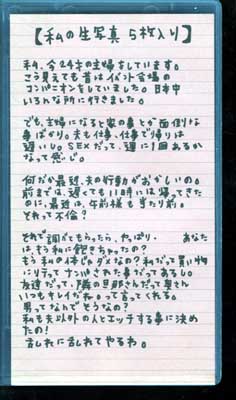 【私の生写真 5枚入り】
私、今24才の主婦をしています。
こう見えても昔はイベント会場の
コンパニオンをしていました。日本中
いろんな所に行きました。
でも、主婦になると家の事とか面倒な
事ばかり。夫も仕事、仕事で帰りは
遅いし。SEXだって、週に1回あるか
なって感じ。
何だか最近、夫の行動がおかしいの。
前までは、遅くても11時には帰ってきた
のに、最近は、午前様も当たり前。
それって不倫?
それで調べてもらったら、やっぱり・ あなた
はもう私に飽きちゃったの?
もう私の体じゃダメなの?私だって買い物
に行って ナンパされた事だってあるし。
友達だって、隣の旦那さんだって奥さん
いつもキレイだね。って言ってくれる。
男ってなんでそうなの?
私も夫以外の人とエッチする事に決め
たの!
乱れに乱れてやるわ。